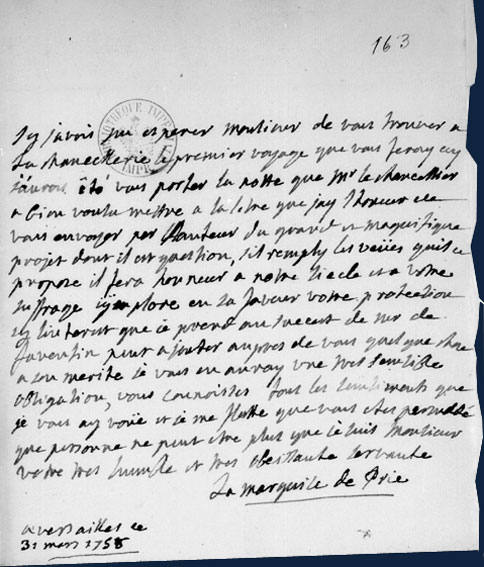 163
BIBLIOTHEQUE IMPERIALE
Sy javois pu esperer monsieur de vous trouver a
La chancellerie le premier voyage que vous feray icy
j'aurois été vous porter la notte que Mr le chancellier
a bien voulu mettre a la letre que jay l'honneur de
vous envoyer par l'auteur du grand et magnifique
projet dont il est question, s'il remply les veües qu'il se
propose il fera honneur a notre siecle et a votre
suffrage j'implore en sa faveur votre protection
sy l'interest que ie prend au succest de mr de
faventin peut ajouter aupres de vous quelque chose
a son merite je vous en auray une tres sensible
obligation, vous connoisses tout les sentiments que
je vous ay voüé et ie me flatte que vous etes persuadé
que personne ne peut etre plus que ie suis monsieur
votre tres humble et tres obeissante servante
La marquise de Prie
a versailles ce
31 mars 1758